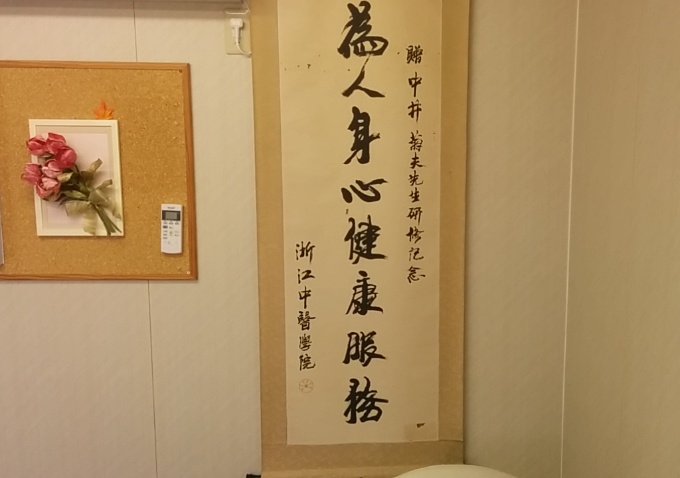 贈中井菊夫先生研修記念
為人身心健康服務
浙江中醫學院